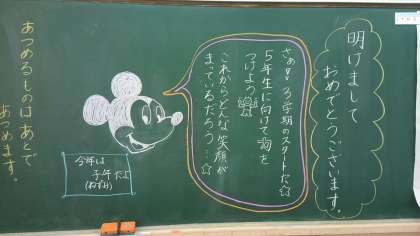 明けまして
おめでとうございます。
さぁ!! 3学期のスタートだ☆
5年生に向けて力を
つけよう
これからどんな笑顔が
まっているだろう…☆
今年は
子年だよ
(ねずみ)
あつめるものは あとで
あつめます。